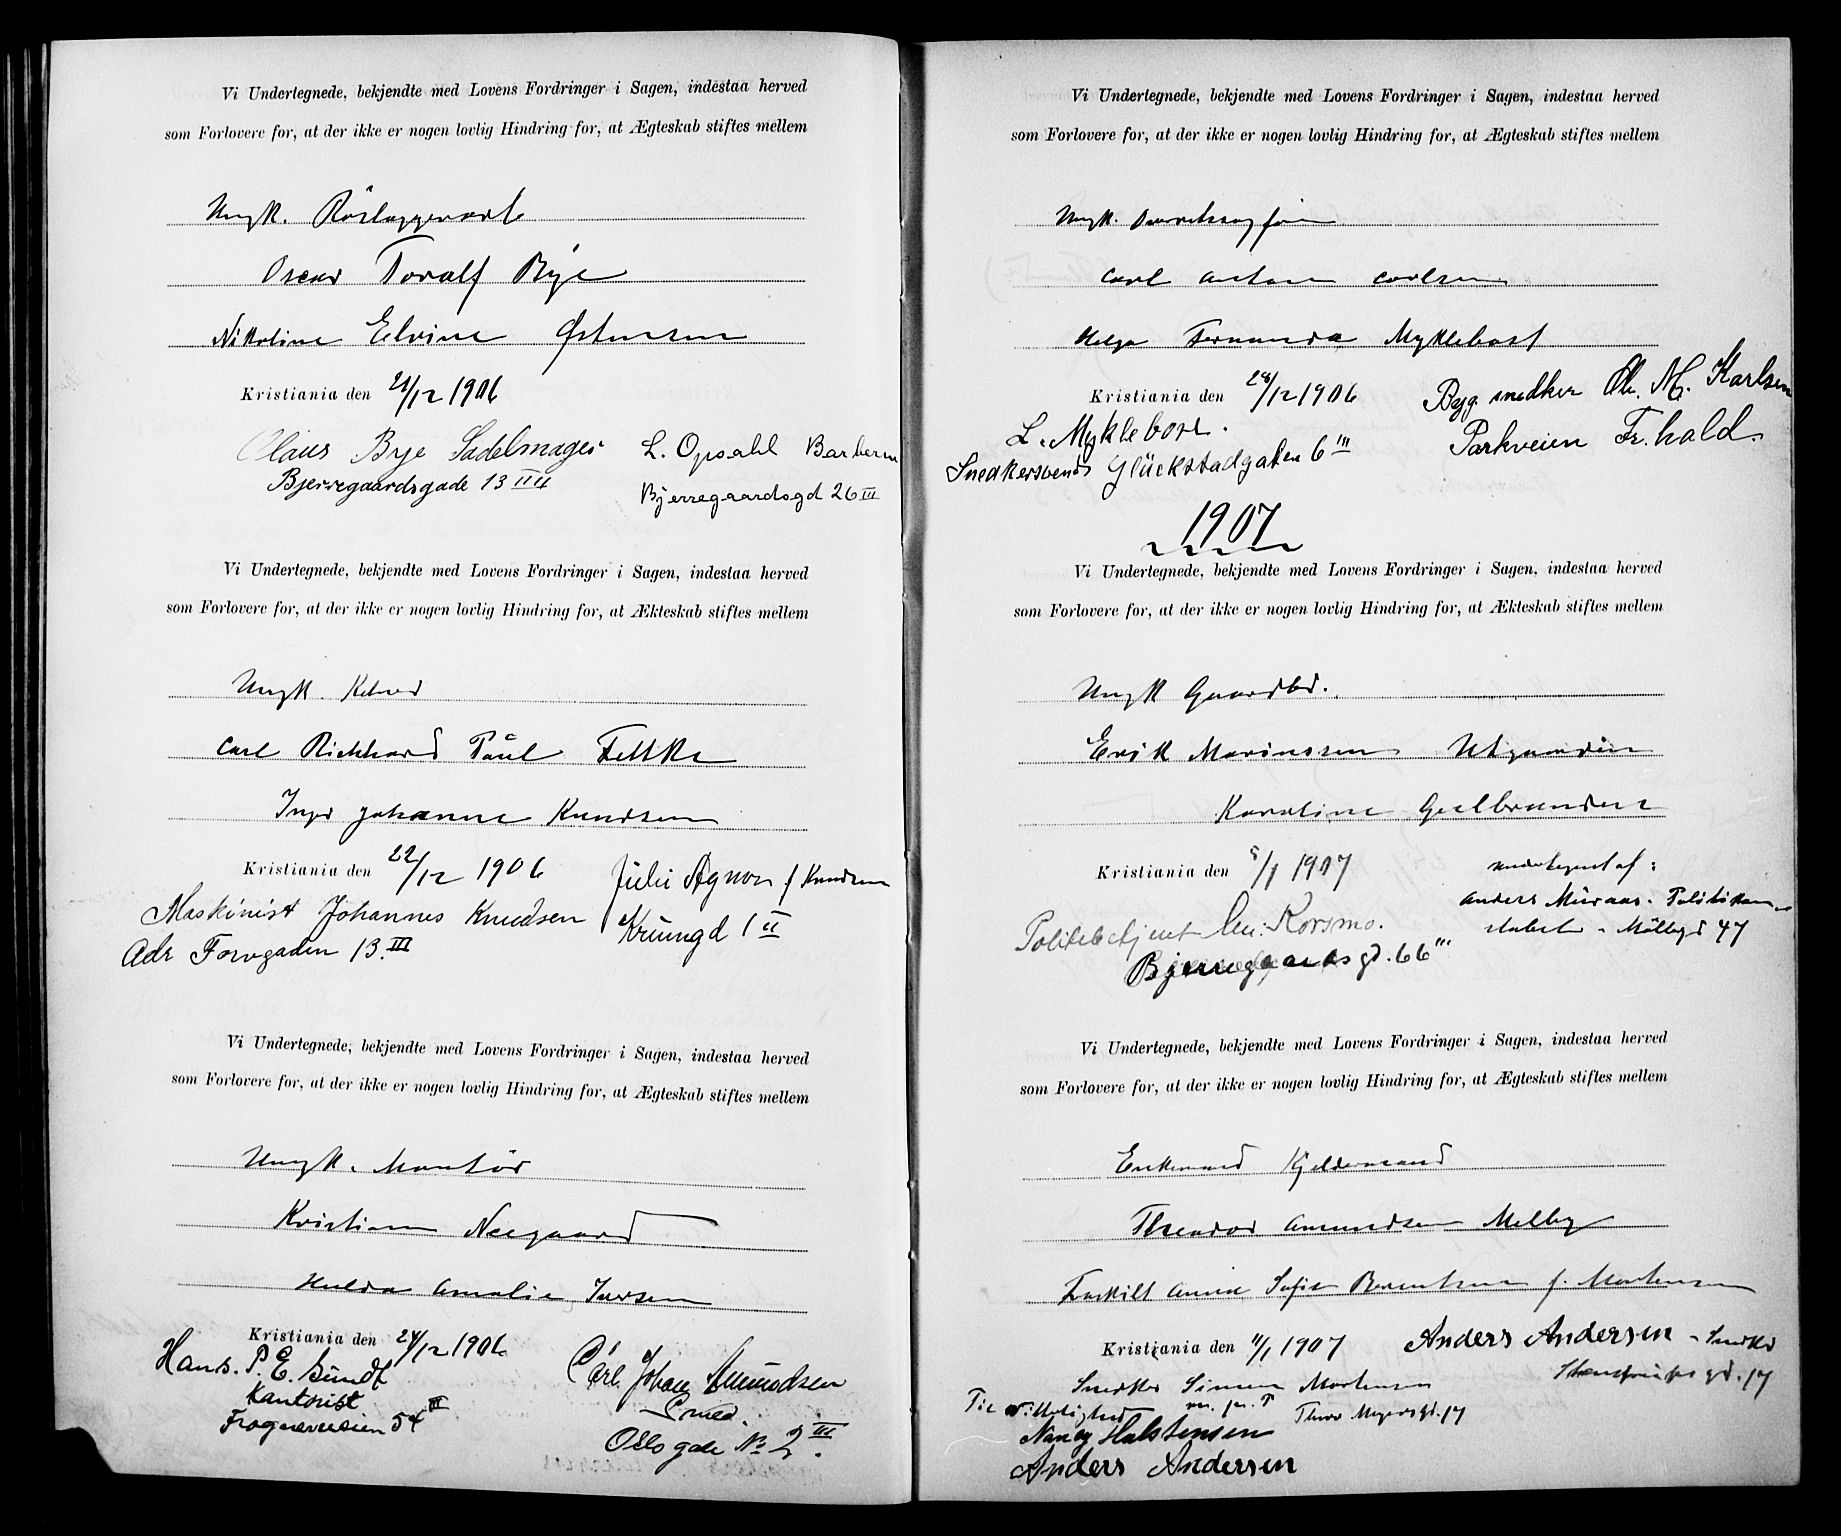 Vi Undertegnede, bekjendte med Lovens Fordringer i Sagen, indestaa herved
som Forlovere for, at der ikke er nogen lovlig Hindring for, at Ægteskab stiftes mellem
Ungk.
Oscar Toralf Bye
Nikoline Elvine Østensen
Kristiania den 21/12 1906
Olaus Bye Sadelmager L. Opsahl Barberer
Bjerregaardsgade 13 IIII Bjerregaardsgd 26 III
Vi Undertegnede, bekjendte med Lovens Fordringer i Sagen, indestaa herved
som Forlovere for, at der ikke er nogen lovlig Hindring for, at Ækteskab stiftes mellem
Ungk.
Carl Richhard Paul Fettke
Johanne Knudsen
Kristiania den 22/12 1906
Julie Agnor f Knudsen
Maskinist Johannes Knudsen
1 II
Adr 13. III
Vi Undertegnede, bekjendte med Lovens Fordringer i Sagen, indestaa herved
som Forlovere for, at der ikke er nogen lovlig Hindring for, at Ægteskab stiftes mellem
Ungk. Montör
Kristian Neegaard
Hulda Amalie Iversen
Kristiania den 24/12 1906
Hans. P. E. Sundt Carl Johan Amundsen
Kantorist Smed.
Frognerveien 54 III Oslo gade No 2 III.
Vi Undertegnede, bekjendte med Lovens Fordringer i Sagen, indestaa herved
som Forlovere for, at der ikke er nogen lovlig Hindring for, at Ægteskab stiftes mellem
Ungk.
Carl Anton Carlsen
Helga Fernanda Myklebost
Kristiania den 28/12 1906 Byg snedker Chr. M. Karlsen
L. Myklebost. Parkveien Fr.hald.
Snedkersvend Glückstadgaten 6 III
1907
Vi Undertegnede, bekjendte med Lovens Fordringer i Sagen, indestaa herved
som Forlovere for, at der ikke er nogen lovlig Hindring for, at Ækteskab stiftes mellem
Ungk Gaardbr.
Erik Marinussen Utgaarden
Karoline Gulbrandsen
Kristiania den 5/1 1907
undertegnet af:
Anders
Politibetjent Korsmo. Möllegd 47
Bjerregaards gd. 66 III
Vi Undertegnede, bekjendte med Lovens Fordringer i Sagen, indestaa herved
som Forlovere for, at der ikke er nogen lovlig Hindring for, at Ægteskab stiftes mellem
Enkemand Kjeldermand
Theodor Amundsen Melby
Fraskilt Anna Sofie Berentsen f. Mortensen
Kristiania den 11/1 1907 Anders Andersen - Snedker
Snedker Simen Mortensen m. p. P. gd. 17
Til Vitterlighed Thor Meyersgd. 17
Nancy Halstensen
Anders Andersen